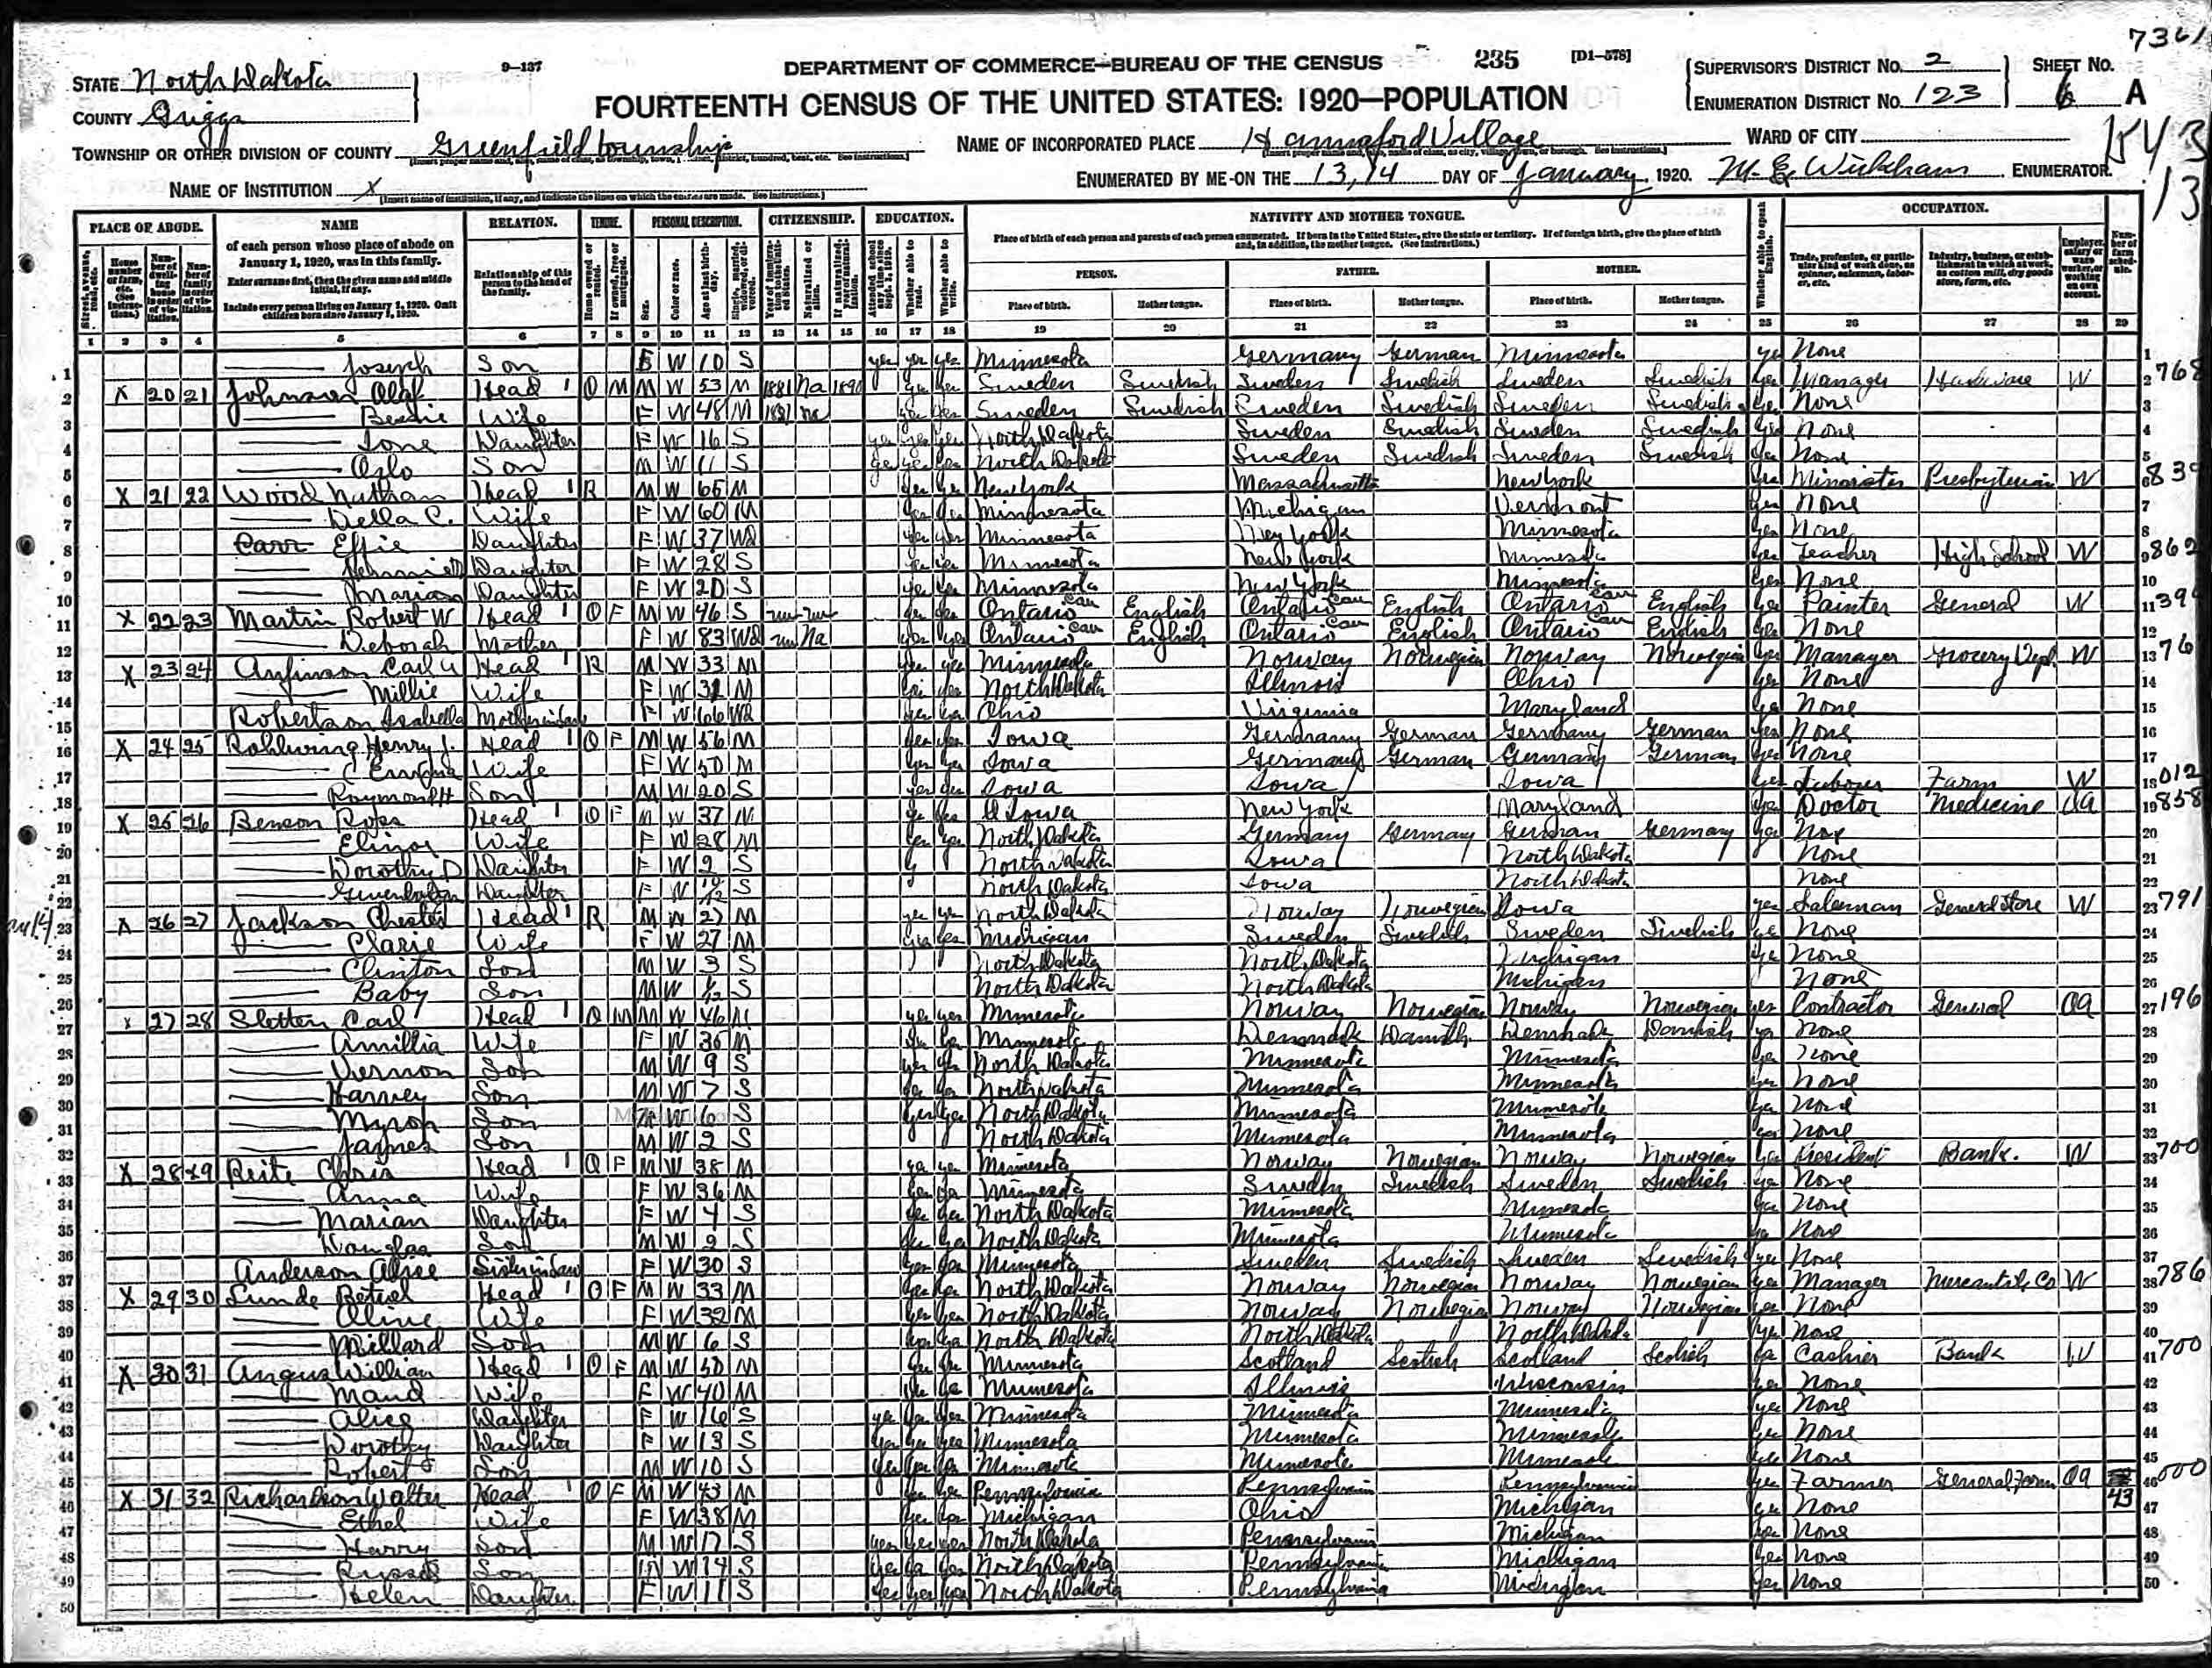 7361
STATE North Dakota
9—137
DEPARTMENT OF COMMERCE—BUREAU OF THE CENSUS
235
[D1—578]
SUPERVISOR'S DISTRICT NO. 2
SHEET NO.
COUNTY Griggs
FOURTEENTH CENSUS OF THE UNITED STATES: 1920—POPULATION
ENUMERATION DISTRICT NO. 123
6 A
TOWNSHIP OR OTHER DIVISION OF COUNTY Greenfield township
NAME OF INCORPORATED PLACE Hannaford Village
WARD OF CITY
NAME OF INSTITUTION X
ENUMERATED BY ME ON THE 13, 14 DAY OF January, 1920. M. E. Wickham ENUMERATOR.
[Insert name of institution, if any, and indicate the lines on which the entries are made. See instructions.]
13
PLACE OF ABODE. NAME RELATION. TENURE. PERSONAL DESCRIPTION. CITIZENSHIP. EDUCATION. NATIVITY AND MOTHER TONGUE. OCCUPATION.
of each person whose place of abode on January 1, 1920, was in this family.
Enter surname first, then the given name and middle initial, if any.
Include every person living on January 1, 1920. Omit children born since January 1, 1920.
Relationship of this person to the head of the family.
Place of birth of each person and parents of each person enumerated. If born in the United States, give the state or territory. If of foreign birth, give the place of birth and, in addition, the mother tongue. (See Instructions.)
PERSON. FATHER. MOTHER.
Place of birth. Mother tongue. Place of birth. Mother tongue. Place of birth. Mother tongue.
1 2 3 4 5 6 7 8 9 10 11 12 13 14 15 16 17 18 19 20 21 22 23 24 25 26 27 28 29
1 Joseph Son W 10 S yes yes yes Minnesota Germany German Minnesota yes None
2 X 20 21 Johnson Olaf Head 1 O M M W 53 M 1881 Na 1890 yes yes Sweden Swedish Sweden Swedish Sweden Swedish yes Manager Hardware W 768
3 Bessie Wife F W 48 M 1881 na yes yes Sweden Swedish Sweden Swedish Sweden Swedish yes None
4 Ione Daughter F W 16 S yes yes yes North Dakota Sweden Swedish Sweden Swedish yes None
5 Oslo Son M W 11 S yes yes yes North Dakota Sweden Swedish Sweden Swedish yes None
6 X 21 22 Wood Nathan Head 1 R M W 65 M yes yes New York Massachusetts New York yes Minister Presbyterian W 839
7 Della C. Wife F W 60 M yes yes Minnesota Michigan Vermont yes None
8 Carr Effie Daughter F W 37 Wd yes yes Minnesota New York Minnesota yes None
9 Daughter F W 28 S yes yes Minnesota New York Minnesota yes Teacher High School W 862
10 Marian Daughter F W 20 S yes yes Minnesota New York Minnesota yes None
11 X 22 23 Martin Robert W Head 1 O F M W 46 S un un yes yes Ontario Can English Ontario Can English Ontario Can English yes Painter General W 39
12 Deborah Mother F W 83 Wd un Na yes yes Ontario Can English Ontario Can English Ontario Can English yes None
13 X 23 24 Anfinson Carl A Head 1 R M W 33 M yes yes Minnesota Norway Norwegian Norway Norwegian yes Manager Grocery Dept. W 76
14 Millie Wife F W 32 M yes yes North Dakota Illinois Ohio yes None
15 Robertson Isabella Mother in law F W 66 Wd yes yes Ohio Virginia Maryland yes None
16 X 24 25 Rohlwing Henry J. Head 1 O F M W 56 M yes yes Iowa Germany German Germany German yes None
17 Emma Wife F W 50 M yes yes Iowa Germany German Germany German yes None
18 Raymond H Son M W 20 S yes yes Iowa Iowa Iowa yes Laborer Farm W 012
19 X 25 26 Benson Ross Head 1 O F M W 37 M yes yes Iowa New York Maryland yes Doctor Medicine OA 858
20 Elinor Wife F W 28 M yes yes North Dakota Germany Germany German Germany yes None
21 Dorothy D Daughter F W 2 S North Dakota Iowa North Dakota None
22 Gwendolyn Daughter F W S North Dakota Iowa North Dakota None
23 X 26 27 Jackson Chester Head 1 R M W 27 M yes yes North Dakota Norway Norwegian Iowa yes Salesman General Store W 791
24 Clarie Wife F W 27 M yes yes Michigan Sweden Swedish Sweden Swedish yes None
25 Clinton Son M W 3 S North Dakota North Dakota Michigan yes None
26 Baby Son M W 1/12 S North Dakota North Dakota Michigan None
27 X 27 28 Sletten Carl Head 1 O M M W 46 M yes yes Minnesota Norway Norwegian Norway Norwegian yes Contractor General OA 196
28 Amillia Wife F W 36 M yes yes Minnesota Denmark Danish Denmark Danish yes None
29 Vernon Son M W 9 S yes yes North Dakota Minnesota Minnesota yes None
30 Harvey Son M W 7 S yes yes North Dakota Minnesota Minnesota yes None
31 Myron Son M W 6 S yes yes North Dakota Minnesota Minnesota yes None
32 James Son M W 2 S North Dakota Minnesota Minnesota yes None
33 X 28 29 Reite Chris Head 1 O F M W 38 M yes yes Minnesota Norway Norwegian Norway Norwegian yes President Bank. W 700
34 Anna Wife F W 36 M yes yes Minnesota Sweden Swedish Sweden Swedish yes None
35 Marian Daughter F W 4 S yes yes North Dakota Minnesota Minnesota yes None
36 Douglas Son M W 2 S North Dakota Minnesota Minnesota yes None
37 Anderson Alice Sister in law F W 30 S yes yes Minnesota Sweden Swedish Sweden Swedish yes None
38 X 29 30 Lunde Betuel Head 1 O F M W 33 M yes yes North Dakota Norway Norwegian Norway Norwegian yes Manager Mercantile Co W 786
39 Oline Wife F W 32 M yes yes North Dakota Norway Norwegian Norway Norwegian yes None
40 Millard Son M W 6 S yes yes North Dakota North Dakota North Dakota yes None
41 X 30 31 Angus William Head 1 O F M W 50 M yes yes Minnesota Scotland Scotish Scotland Scotish yes Cashier Bank W 700
42 Maud Wife F W 40 M yes yes Minnesota Illinois Wisconsin yes None
43 Alice Daughter F W 16 S yes yes yes Minnesota Minnesota Minnesota yes None
44 Dorothy Daughter F W 13 S yes yes yes Minnesota Minnesota Minnesota yes None
45 Robert Son M W 10 S yes yes yes Minnesota Minnesota Minnesota yes None
46 X 31 32 Richardson Walter Head 1 O F M W 43 M yes yes Pennsylvania Pennsylvania Pennsylvania yes Farmer General Farm OA 43 000
47 Ethel Wife F W 38 M yes yes Michigan Ohio Michigan yes None
48 Harry Son M W 17 S yes yes yes North Dakota Pennsylvania Michigan yes None
49 Russel Son M W 14 S yes yes yes North Dakota Pennsylvania Michigan yes None
50 Helen Daughter F W 11 S yes yes yes North Dakota Pennsylvania Michigan yes None